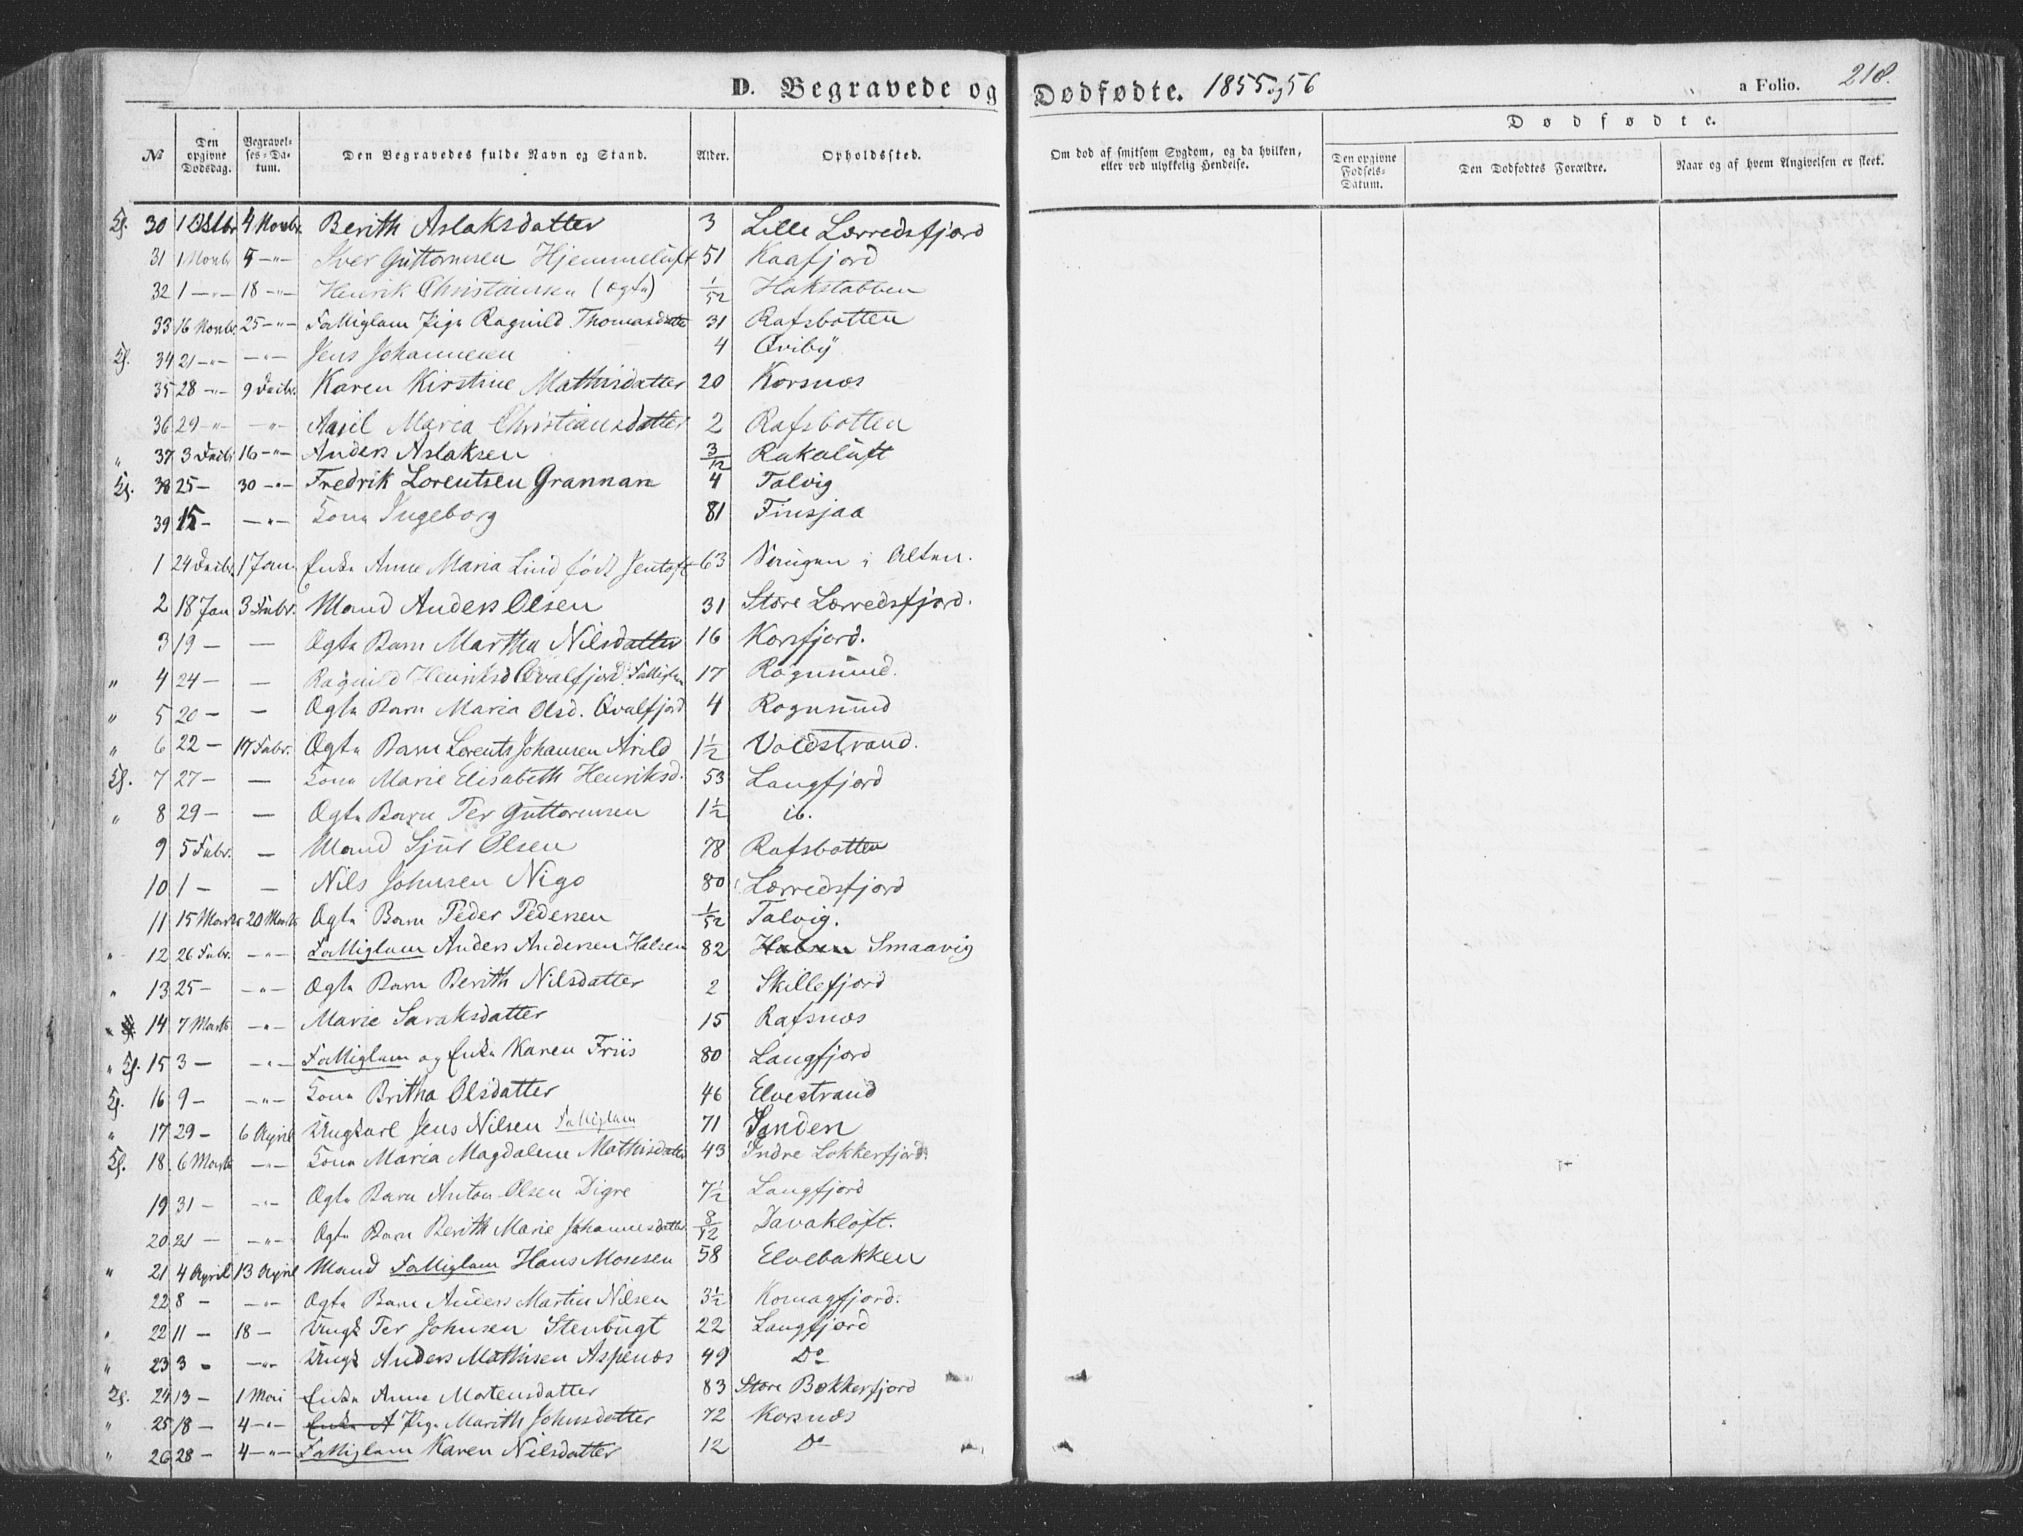 D. Begravede og Dødfødte. 1855 og 56
a Folio. 218.
Dødfødte.
№ Den opgivne Dødsdag. Begravelses-Datum. Den Begravedes fulde Navn og Stand. Alder. Opholdssted. Om død af smitsom Sygdom, og da hvilken, eller ved ulykkelig Hendelse. Den opgivne Fødsels-Datum. Den Dødfødtes Forældre. Naar og af hvem Angivelsen er skeet.
30 1 Octbr 4 Novbr. Berith Aslaksdatter 3 Lille Lærredsfjord
31 1 Novbr 5 -"- Iver Guttormsen Hjemmeluft 51 Kaafjord
32 1 -"- 18 -"- Henrik Christiansen (ægte) 1/52 Hakstabben
33 16 Novbr. 25 -"- Fattiglem Pige Ragnild Thomasdatter 31 Rafsbotten
34 21 -"- -"- Jens Johannesen 4 Qviby
35 28 -"- 9 Decbr. Karen Kirstine Mathisdatter 20 Korsnæs
36 29 -"- -"- Maria Christiansdatter 2 Rafsbotten
" 37 3 Decbr 16 -"- Anders Aslaksen 3/12 Rakaluft
38 25 - 30 -"- Fredrik Lorentsen Grannan 4 Talvig
39 15 - -"- Kone Ingeborg 81 Finsjaa
1 24 Decbr. 1 Jan. Enke Anne Maria Lind født Jentoft 63 i Alten.
2 18 Jan 3 Febr. Mand Anders Olsen 31 Store Lærredsfjord.
3 19 - - Ægte Barn Martha Nilsdatter 16 Korsfjord.
" 4 24 - - Ragnild Henriksd Qvalfjord. Fattiglem 17 Rognsund.
" 5 20 - - Ægte Barn Maria Olsd. Qvalfjord 4 Rognsund
" 6 22 - 17 Febr. Ægte Barn Lorents Johansen Arild 1 1/2 Voldstrand.
7 27 - - Kone Marie Elisabeth Henriksd. 53 Langfjord
" 8 29 - - Ægte Barn Per Guttormsen 1 1/2 ib.
9 5 Febr. - Mand Sjul Olsen 78 Rafsbotten
10 1 - - Nils Johnsen Nigo 80 Lærredsfjord
11 15 Marts 20 Marts Ægte Barn Peder Pedersen 1/52 Talvig.
" 12 26 Febr. -"- Fattiglem Anders Andersen Halsen 82 Halsen Smaavig
" 13 25 - -"- Ægte Barn Berith Nilsdatter 2 Skillefjord
" 14 7 Marts -"- Marie Saraksdatter 15 Rafsnæs
" 15 3 - -"- Fattiglem og Enke Karen Friis 80 Langfjord
16 9 - -"- Kone Britha Olsdatter 46 Elvestrand
" 17 29 - 6 April Ungkarl Jens Nilsen Fattiglem 71 Sanden
18 6 Marts -"- Kone Maria Magdalene Mathisdatter 43 Indre Lokkerfjord.
19 31 - -"- Ægte Barn Anton Olsen Digre 7 1/2 Langfjord
20 21 - -"- Ægte Barn Berith Marie Johannesdatter 8/12 Davakløft.
" 21 4 April 13 April Mand Fattiglem Hans Monsen 58 Elvebakken
22 8 - -"- Ægte Barn Anders Martin Nilsen 3 1/2 Komagfjord.
" 22 11 - 18 - Ungk Per Johnsen Stenbugt 22 Langfjord
" 23 3 - -"- Ungk Anders Mathisen Aspenæs 49 Do
24 13 - 1 Mai Enke Anne Mortensdatter 83 Store Bekkerfjord
" 25 18 - 4 -"- Enke A Pige Marith Johnsdatter 72 Korsnæs
" 26 28 - 4 -"- Fattiglem Karen Nilsdatter 12 Do